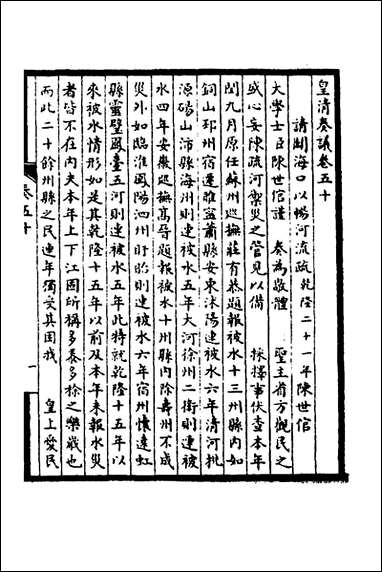 皇清奏議卷五十
請開海口以暢河流疏乾隆二十一年陳世倌
大學士臣陳世倌謹　奏為敬體　聖主省方觀民之
盛心妄陳疏河禦災之管見以備　採擇事伏查本年
閏九月原任蘇州巡撫莊有恭題報被水十三州縣內如
銅山邳州宿遷睢寧蕭縣安東沭陽連被水六年清河桃
源碭山沛縣海州則連被水五年大河徐州二衛則連被
水四年安徽巡撫高晉題報被水十州縣內除壽州不成
災外如臨淮鳳陽泗州盱眙則連被水六年宿州懷遠虹
縣靈璧鳳臺五河則連被水五年此特就乾隆十五年以
來被水情形如是其乾隆十五年以前及本年未報水災
者皆不在內夫本年上下江固所稱多黍多稌之樂歲也
而此二十餘州縣之民連年獨受其困我　皇上愛民
卷五十
一